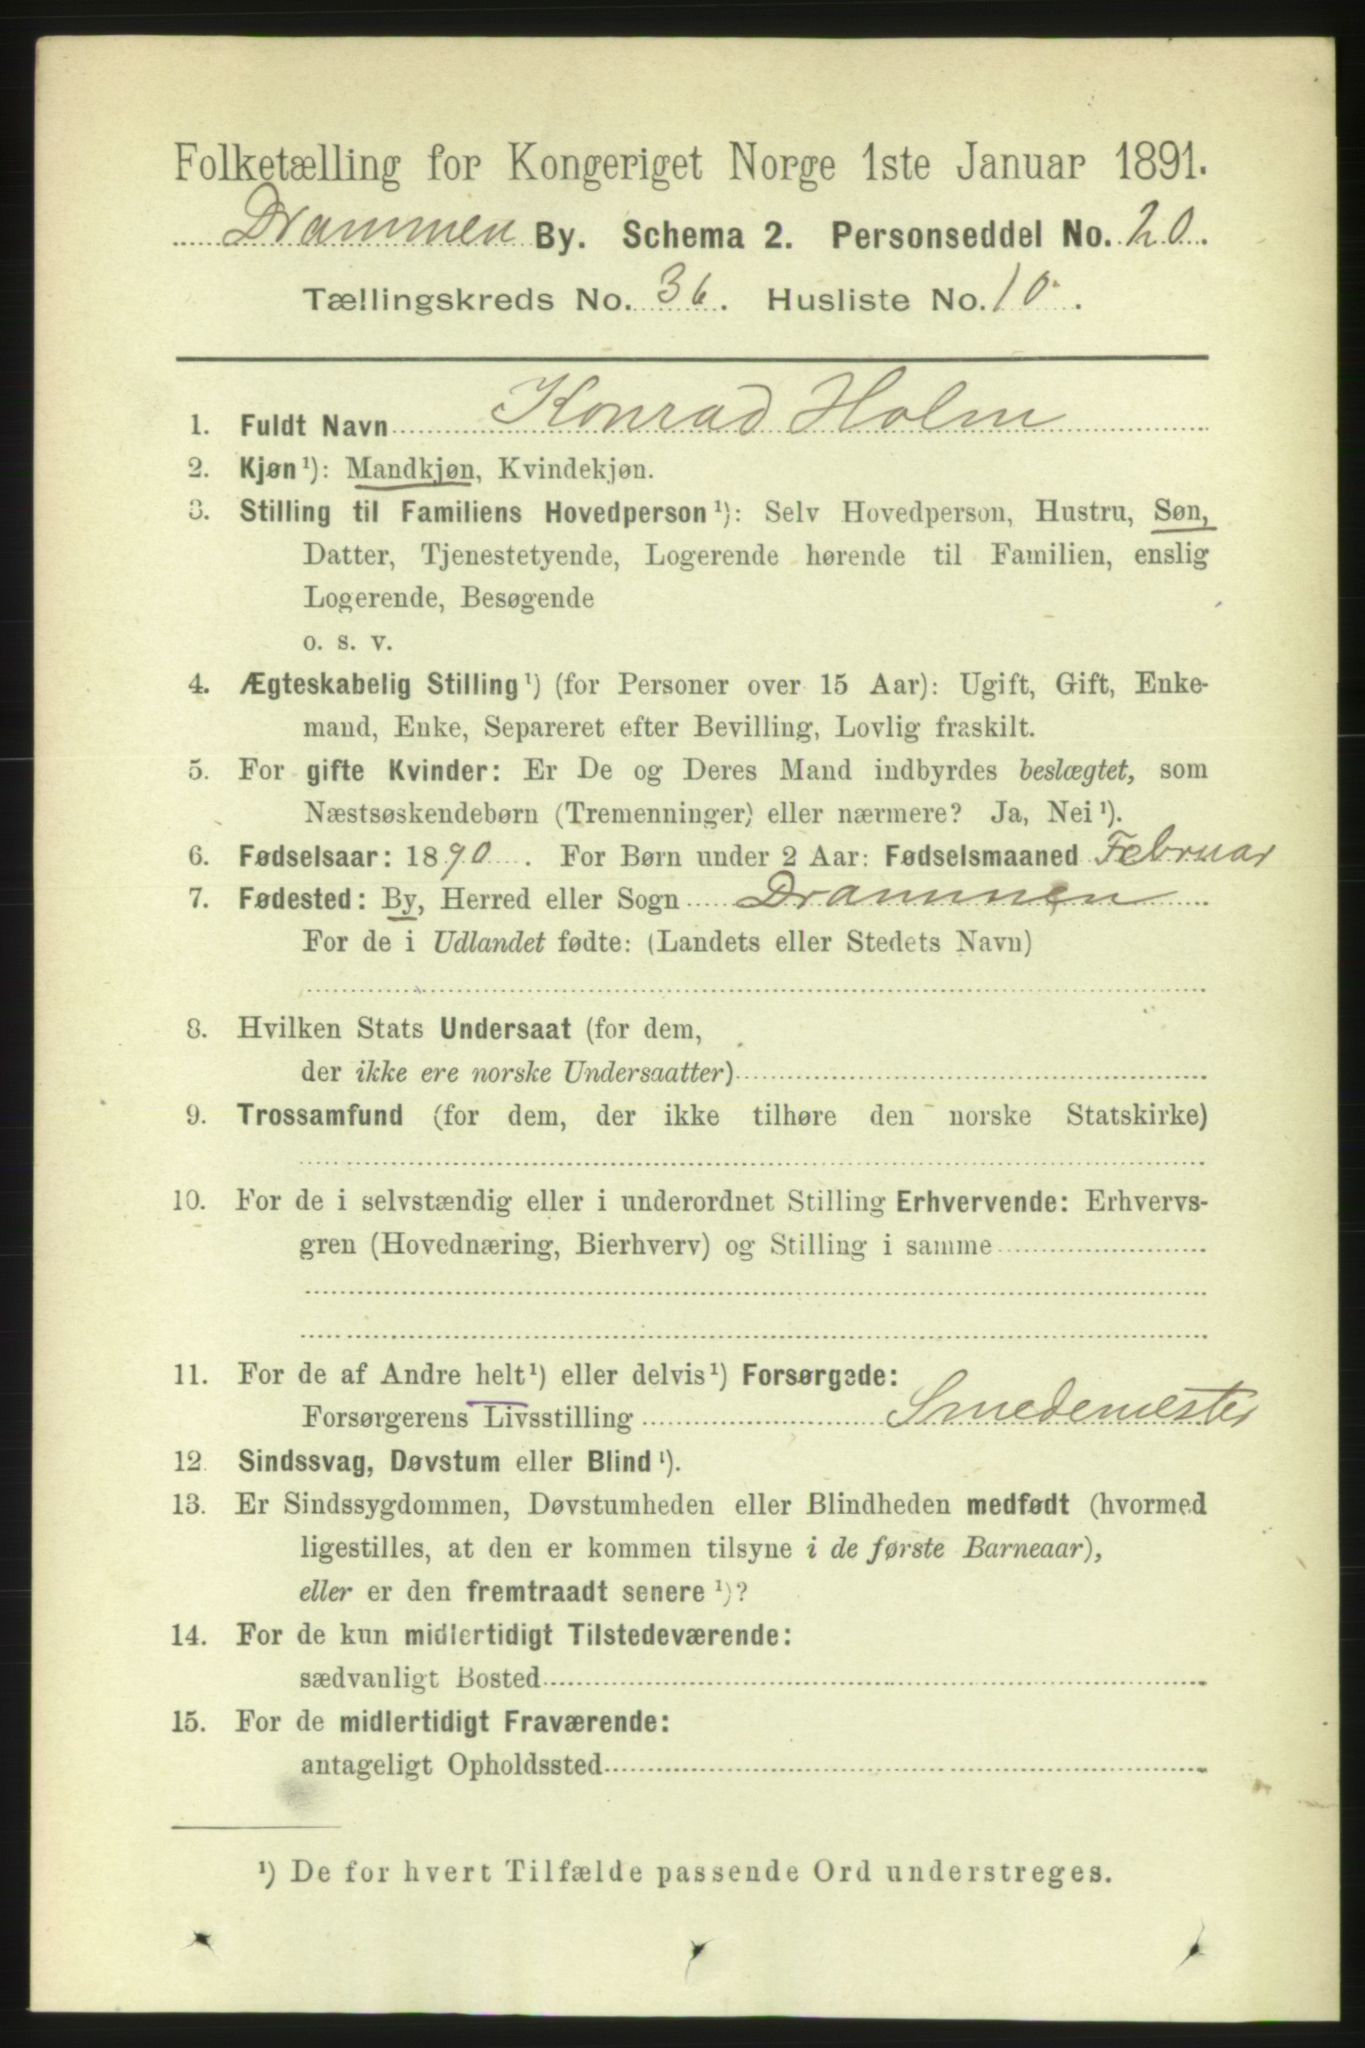 Folketælling for Kongeriget Norge 1ste Januar 1891.
Drammen By. Schema 2. Personseddel No. 20.
Tællingskreds No. 36. Husliste No. 10.
1. Fuldt Navn Konrad Holm
2. Kjøn¹): Mandkjøn, Kvindekjøn.
3. Stilling til Familiens Hovedperson¹): Selv Hovedperson, Hustru, Søn,
Datter, Tjenestetyende, Logerende hørende til Familien, enslig
Logerende, Besøgende
o. s. v.
4. Ægteskabelig Stilling¹) (for Personer over 15 Aar): Ugift, Gift, Enke-
mand, Enke, Separeret efter Bevilling, Lovlig fraskilt.
5. For gifte Kvinder: Er De og Deres Mand indbyrdes beslægtet, som
Næstsøskendebørn (Tremenninger) eller nærmere? Ja, Nei¹).
6. Fødselsaar: 1890. For Børn under 2 Aar: Fødselsmaaned Februar
7. Fødested: By, Herred eller Sogn Drammen
For de i Udlandet fødte: (Landets eller Stedets Navn)
8. Hvilken Stats Undersaat (for dem,
der ikke ere norske Undersaatter)
9. Trossamfund (for dem, der ikke tilhøre den norske Statskirke)
10. For de i selvstændig eller i underordnet Stilling Erhvervende: Erhvervs-
gren (Hovednæring, Bierhverv) og Stilling i samme
11. For de af Andre helt¹) eller delvis¹) Forsørgede:
Forsørgerens Livsstilling Smedemester
12. Sindssvag, Døvstum eller Blind¹).
13. Er Sindssygdommen, Døvstumheden eller Blindheden medfødt (hvormed
ligestilles, at den er kommen tilsyne i de første Barneaar),
eller er den fremtraadt senere¹)?
14. For de kun midlertidigt Tilstedeværende:
sædvanligt Bosted
15. For de midlertidigt Fraværende:
antageligt Opholdssted
¹) De for hvert Tilfælde passende Ord understreges.